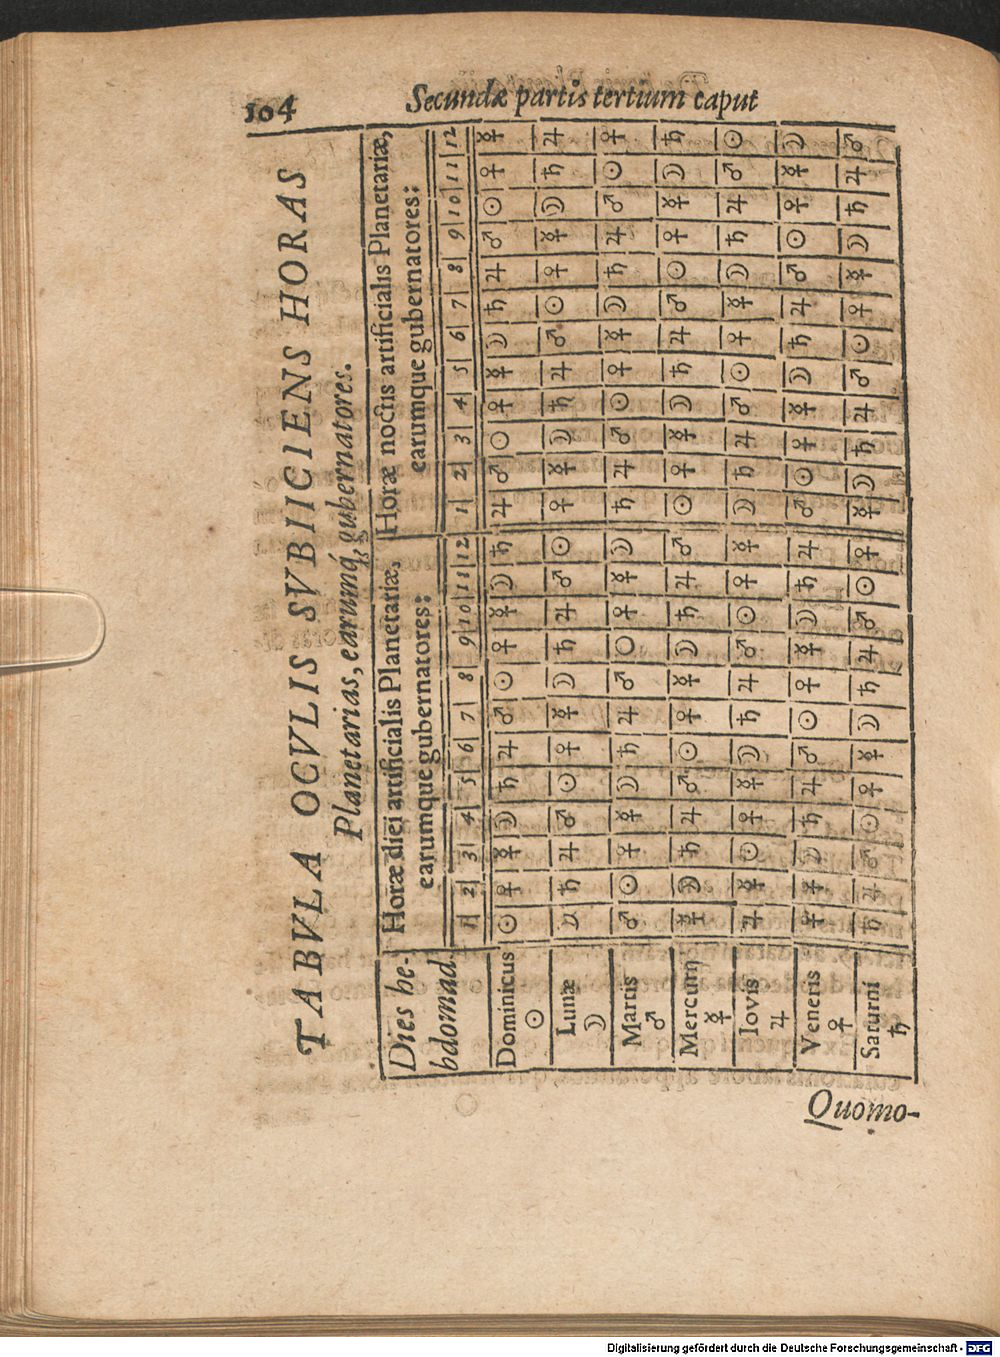 104
Secundæ partis tertium caput
TABVLA OCVLIS SVBIICIENS HORAS
Planetarias, earumq́; gubernatores.
Dies he-
bdomad.
Horæ diei artificialis Planetariæ,
earumque gubernatores:
Horæ noctis artificialis Planetariæ,
earumque gubernatores:
1 2 3 4 5 6 7 8 9 10 11 12 1 2 3 4 5 6 7 8 9 10 11 12
Dominicus ☉ ♀ ☿ ☽ ♄ ♃ ♂ ☉ ♀ ☿ ☽ ♄ ♃ ♂ ☉ ♀ ☿ ☽ ♄ ♃ ♂ ☉ ♀ ☿
☉
Lunæ ☽ ♄ ♃ ♂ ☉ ♀ ☿ ☽ ♄ ♃ ♂ ☉ ♀ ☿ ☽ ♄ ♃ ♂ ☉ ♀ ☿ ☽ ♄ ♃
☽
Martis ♂ ☉ ♀ ☿ ☽ ♄ ♃ ♂ ☉ ♀ ☿ ☽ ♄ ♃ ♂ ☉ ♀ ☿ ☽ ♄ ♃ ♂ ☉ ♀
♂
Mercurij ☿ ☽ ♄ ♃ ♂ ☉ ♀ ☿ ☽ ♄ ♃ ♂ ☉ ♀ ☿ ☽ ♄ ♃ ♂ ☉ ♀ ☿ ☽ ♄
☿
Iovis ♃ ☿ ☉ ♀ ☿ ☽ ♄ ♃ ♂ ☉ ♀ ☿ ☽ ♄ ♃ ♂ ☉ ♀ ☿ ☽ ♄ ♃ ♂ ☉
♃
Veneris ♀ ☿ ☽ ♄ ♃ ♂ ☉ ♀ ☿ ☽ ♄ ♃ ♂ ☉ ♀ ☿ ☽ ♄ ♃ ♂ ☉ ♀ ☿ ☽
♀
Saturni ♄ ♃ ♂ ☉ ♀ ☿ ☽ ♄ ♃ ♂ ☉ ♀ ☿ ☽ ♄ ♃ ♂ ☉ ♀ ☿ ☽ ♄ ♃ ♂
♄
Quomo-
Digitalisierung gefördert durch die Deutsche Forschungsgemeinschaft - DFG